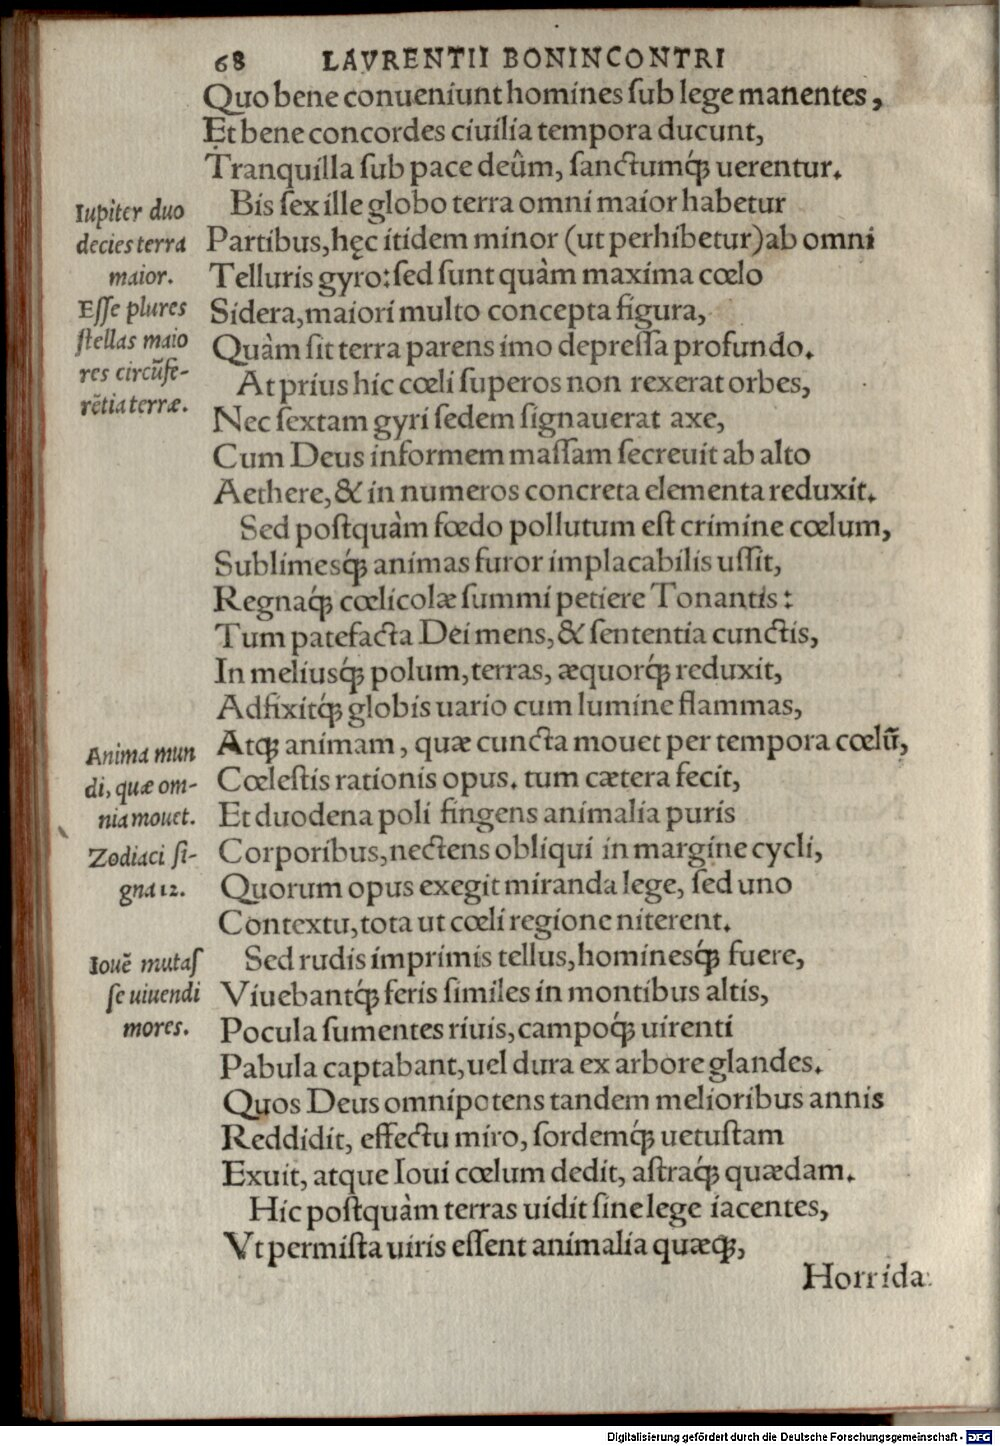 68 LAVRENTII BONINCONTRI
Quo bene conueniunt homines ſub lege manentes,
Et bene concordes ciuilia tempora ducunt,
Tranquilla ſub pace deûm, ſanctumq́; uerentur.
Bis ſex ille globo terra omni maior habetur
Partibus, hęc itidem minor (ut perhibetur) ab omni
Telluris gyro: ſed ſunt quàm maxima cœlo
Sidera, maiori multo concepta figura,
Quàm ſit terra parens imo depreſſa profundo.
At prius hic cœli ſuperos non rexerat orbes,
Nec ſextam gyri ſedem ſignauerat axe,
Cum Deus informem maſſam ſecreuit ab alto
Aethere, & in numeros concreta elementa reduxit.
Sed poſtquàm fœdo pollutum eſt crimine cœlum,
Sublimesq́; animas furor implacabilis uſſit,
Regnaq́; cœlicolæ ſummi petiere Tonantis:
Tum patefacta Dei mens, & ſententia cunctis,
In meliusq́; polum, terras, æquorq́; reduxit,
Adfixitq́; globis uario cum lumine flammas,
Atq; animam, quæ cuncta mouet per tempora cœlũ,
Cœleſtis rationis opus. tum cætera fecit,
Et duodena poli fingens animalia puris
Corporibus, nectens obliqui in margine cycli,
Quorum opus exegit miranda lege, ſed uno
Contextu, tota ut cœli regione niterent.
Sed rudis imprimis tellus, hominesq́; fuere,
Viuebantq́; feris ſimiles in montibus altis,
Pocula ſumentes riuis, campoq́; uirenti
Pabula captabant, uel dura ex arbore glandes.
Quos Deus omnipotens tandem melioribus annis
Reddidit, effectu miro, ſordemq́; uetuſtam
Exuit, atque Ioui cœlum dedit, aſtraq́; quædam.
Hic poſtquàm terras uidit ſine lege iacentes,
Vt permiſta uiris eſſent animalia quæq;,
Horrida
Iupiter duo
decies terra
maior.
Eſſe plures
ſtellas maio
res circũfe-
rẽtia terræ.
Anima mun
di, quæ om-
nia mouet.
Zodiaci ſi-
gna 12.
Iouẽ mutaſ
ſe uiuendi
mores.
Digitalisierung gefördert durch die Deutsche Forschungsgemeinschaft - DFG